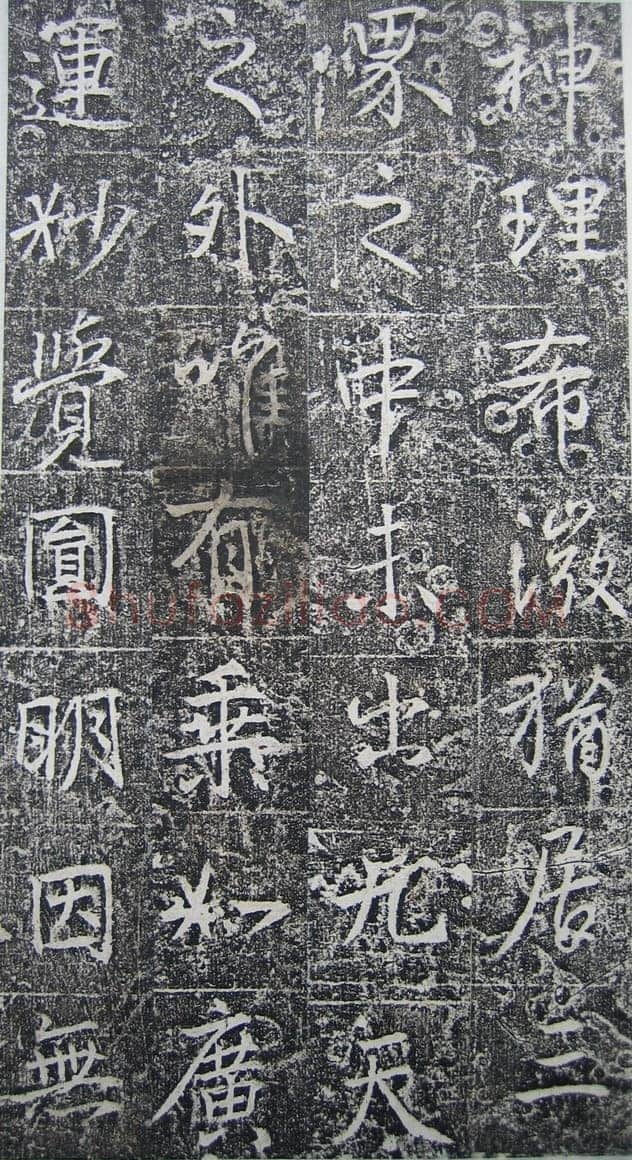 神理希微猶居三
之中未出九天
之外唯有乘如廣
運妙覺圓明因無
Shufaziliao.COM